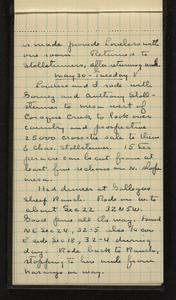 is made provide Lovelers with
one room. Returned to
Stollsteimers, after straining
May 30 - Tuesday
Lovelers and I rode with
Gomez and Anthony Stoll-
steimer to mesa west of
Cocagne Creek to look over
country and prospective
25,000 cross-tie sale to them
& Chas. Stollsteimer. 15 ties
per acre can be cut from at
least five sections on N. slope
mesa.
Had dinner at Gallegos
Sheep Ranch. Rode on W. to
about Sec 22 32 N 5 W.
Good pine all the way. Found
NE Sec 24, 32-5 also 1/4 cor
E side Sec 18, 32-4 during
day. Rode back to Ranch,
stopping to see mill from
on way.